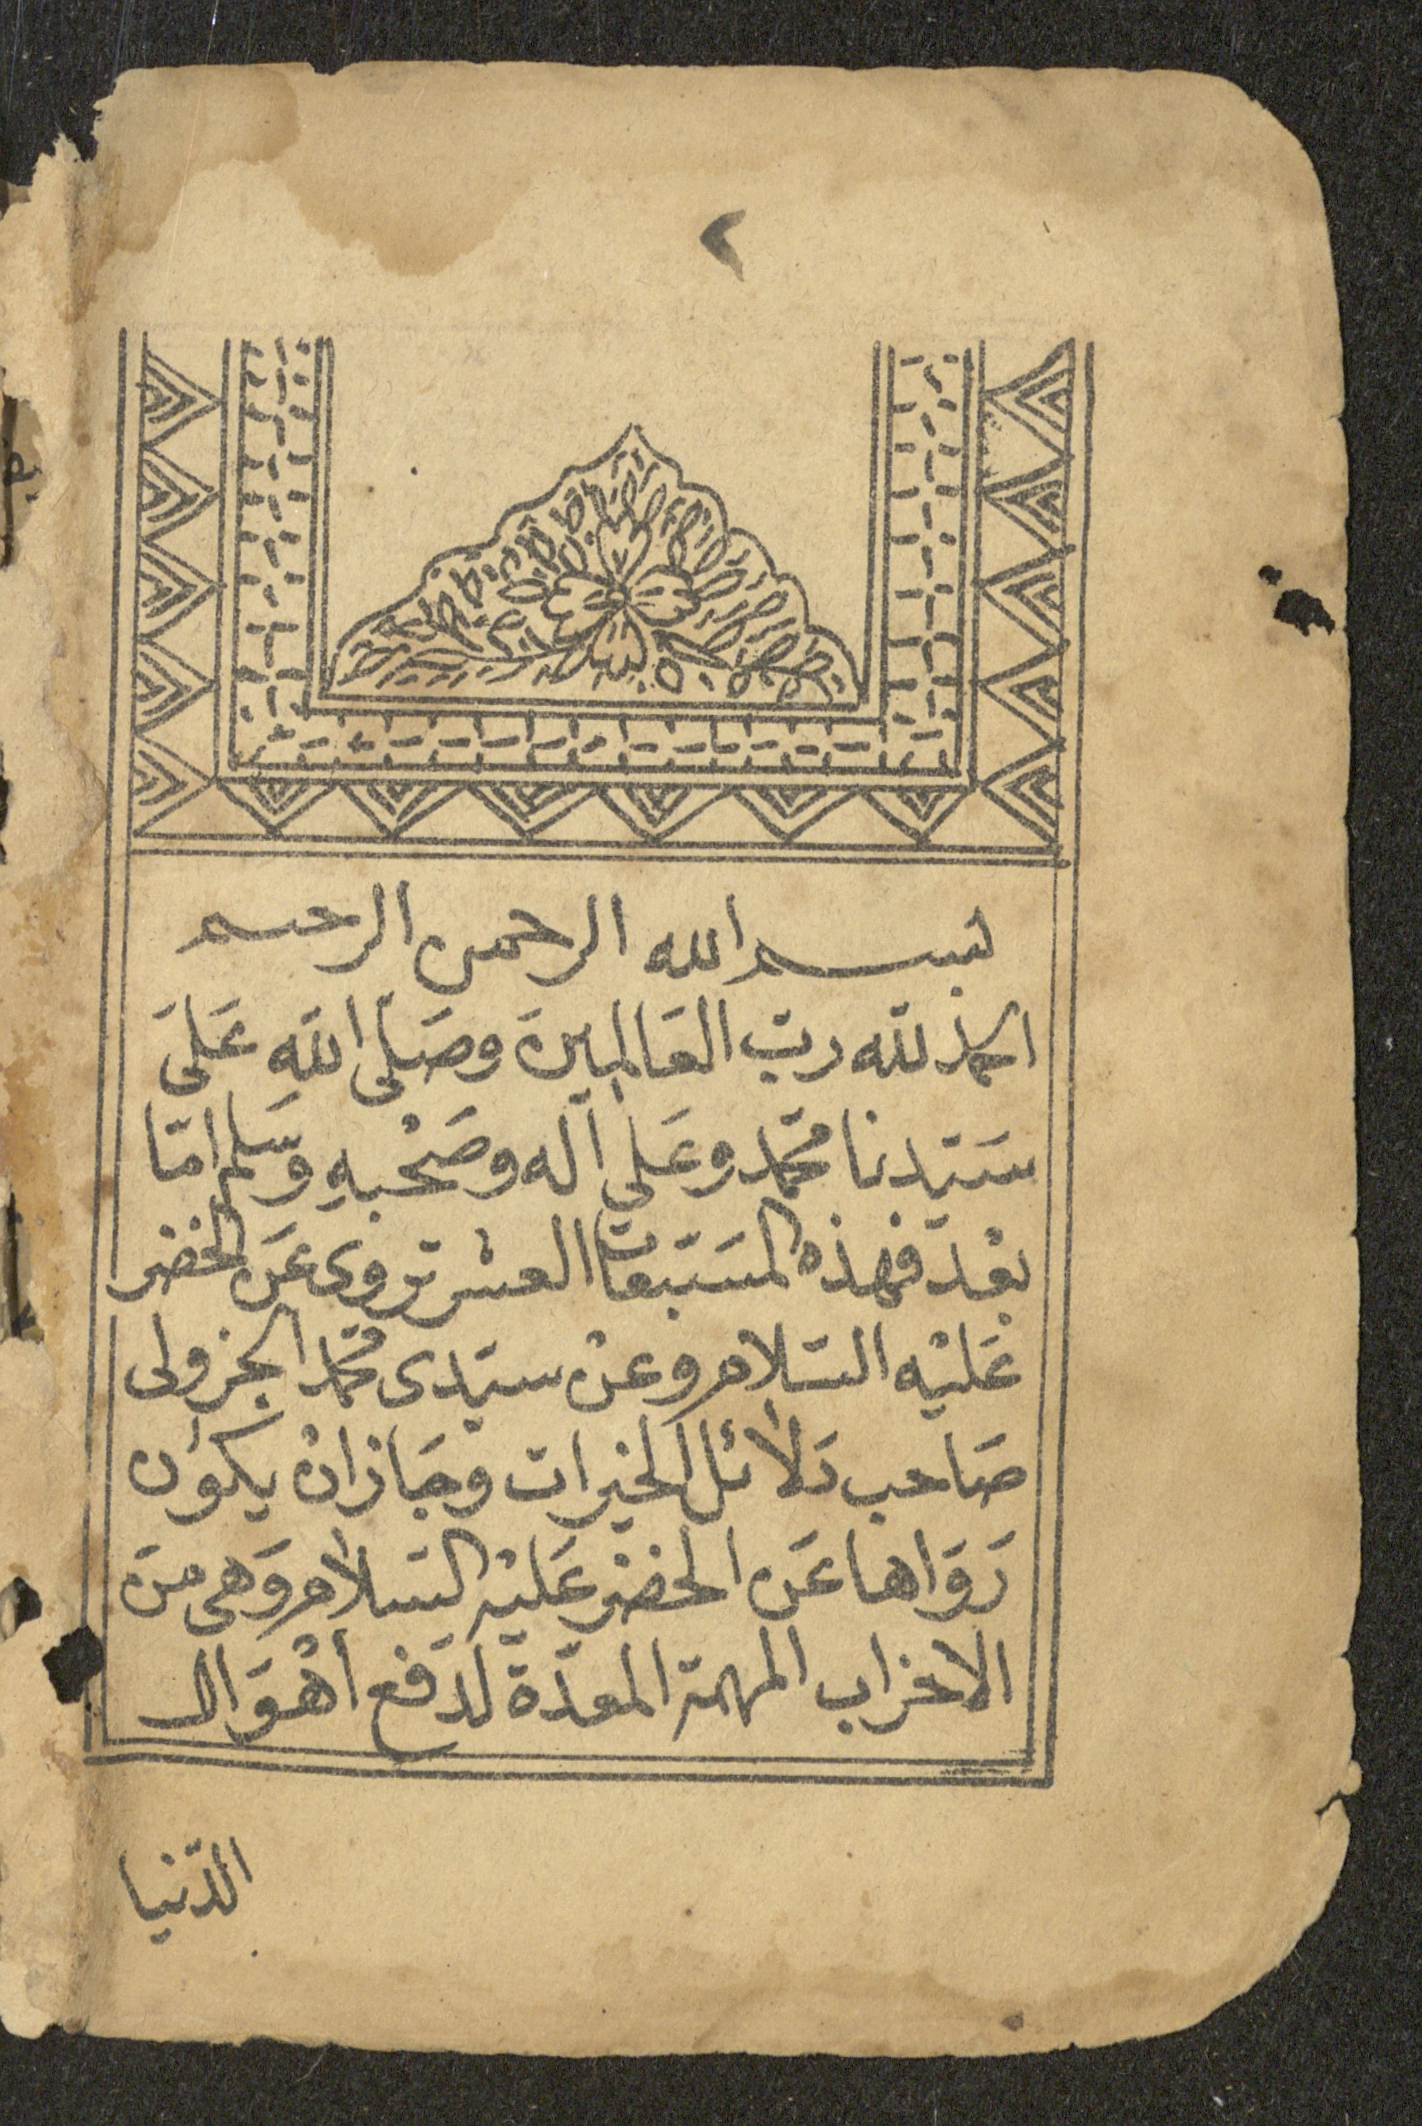 ٢
بسم الله الرحمن الرحيم
الحمد لله ربّ العَالمينَ وصَلّى الله عَلىَ
سَيّدنا محمّد وعَلى آله وصَحْبهِ وَسَلم امّا
بعْد فهذه المسَبّعَات العشر تروى عَن الخضر
عَليْه السّلام وعنْ سيّدى محمّد الجزولى
صَاحب دَلائل الخيرات وجَازانْ يكوُن
رَوَاها عَن الخضر عَليْه السّلام وَهى منَ
الاحزاب المهمّة المعدّة لدَفع أهْوَال
الدّنيا